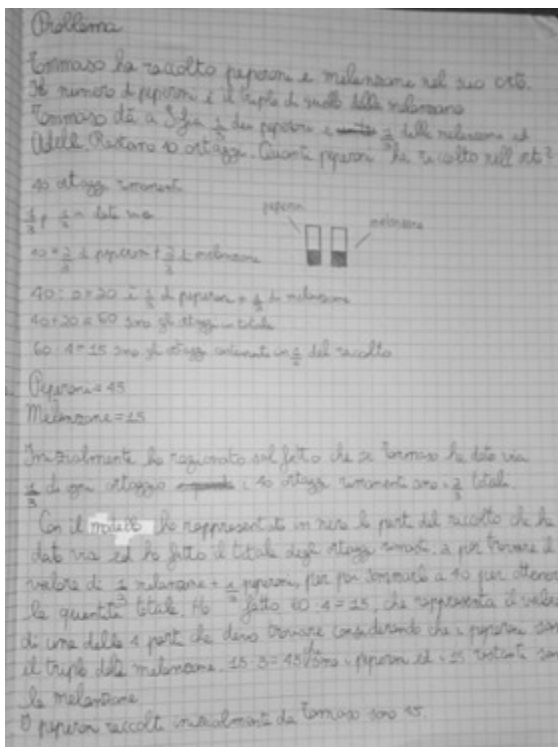 Problema
Tommaso ha raccolto peperoni e melanzane nel suo orto.
Il numero di peperoni è il triplo di quello delle melanzane
Tommaso dà a Sofia 1/3 dei peperoni e 1/3 delle melanzane ad
Adele. Restano 40 ortaggi. Quanti peperoni ha raccolto nell'orto?
40 ortaggi rimanenti
1/3 p 1/3 m dati via
peperoni
melanzane
40 = 2/3 di peperoni + 2/3 di melanzane
40 : 2 = 20 è 1/3 di peperoni + 1/3 di melanzane
40 + 20 = 60 sono gli ortaggi in totale
60 : 4 = 15 sono gli ortaggi contenuti in del raccolto
Peperoni = 45
Melanzane = 15
Inizialmente ho ragionato sul fatto che se Tommaso ha dato via
1/3 di ogni ortaggio i 40 ortaggi rimanenti sono i 2/3 totali.
Con il modello ho rappresentato in nero le parti del raccolto che ha
dato via ed ho fatto il totale degli ortaggi rimasti : 2 per trovare il
valore di 1/3 melanzane + 1/3 peperoni, per poi sommarlo a 40 per ottenere
la quantità totale. Ho fatto 60 : 4 = 15, che rappresenta il valore
di una delle 4 parti che devo trovare considerando che i peperoni sono
il triplo delle melanzane. 15 · 3 = 45 che sono i peperoni ed i 15 restanti sono
le melanzane
I peperoni raccolti inizialmente da Tommaso sono 45.